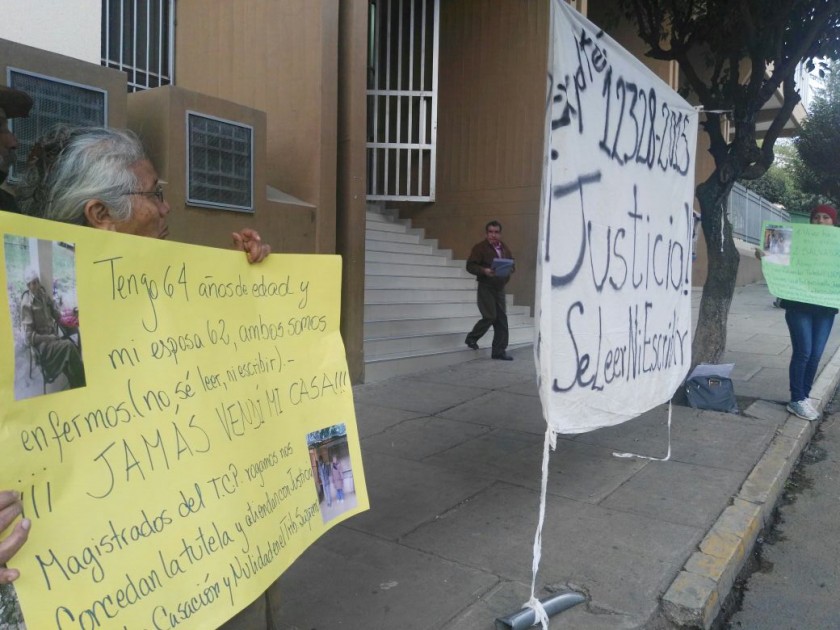 Tengo 64 años de edad y
mi esposa 62, ambos somos
enfermos. (no sé leer, ni escribir).-
¡¡¡ JAMÁS VENDÍ MI CASA!!!
Magistrados del T.C.P. rogamos nos
concedan la tutela y atiendan con Justicia
Casación y Nulidad en el Trib Supremo
12328-2015
¡Justicia!
Se Leer Ni Escribir